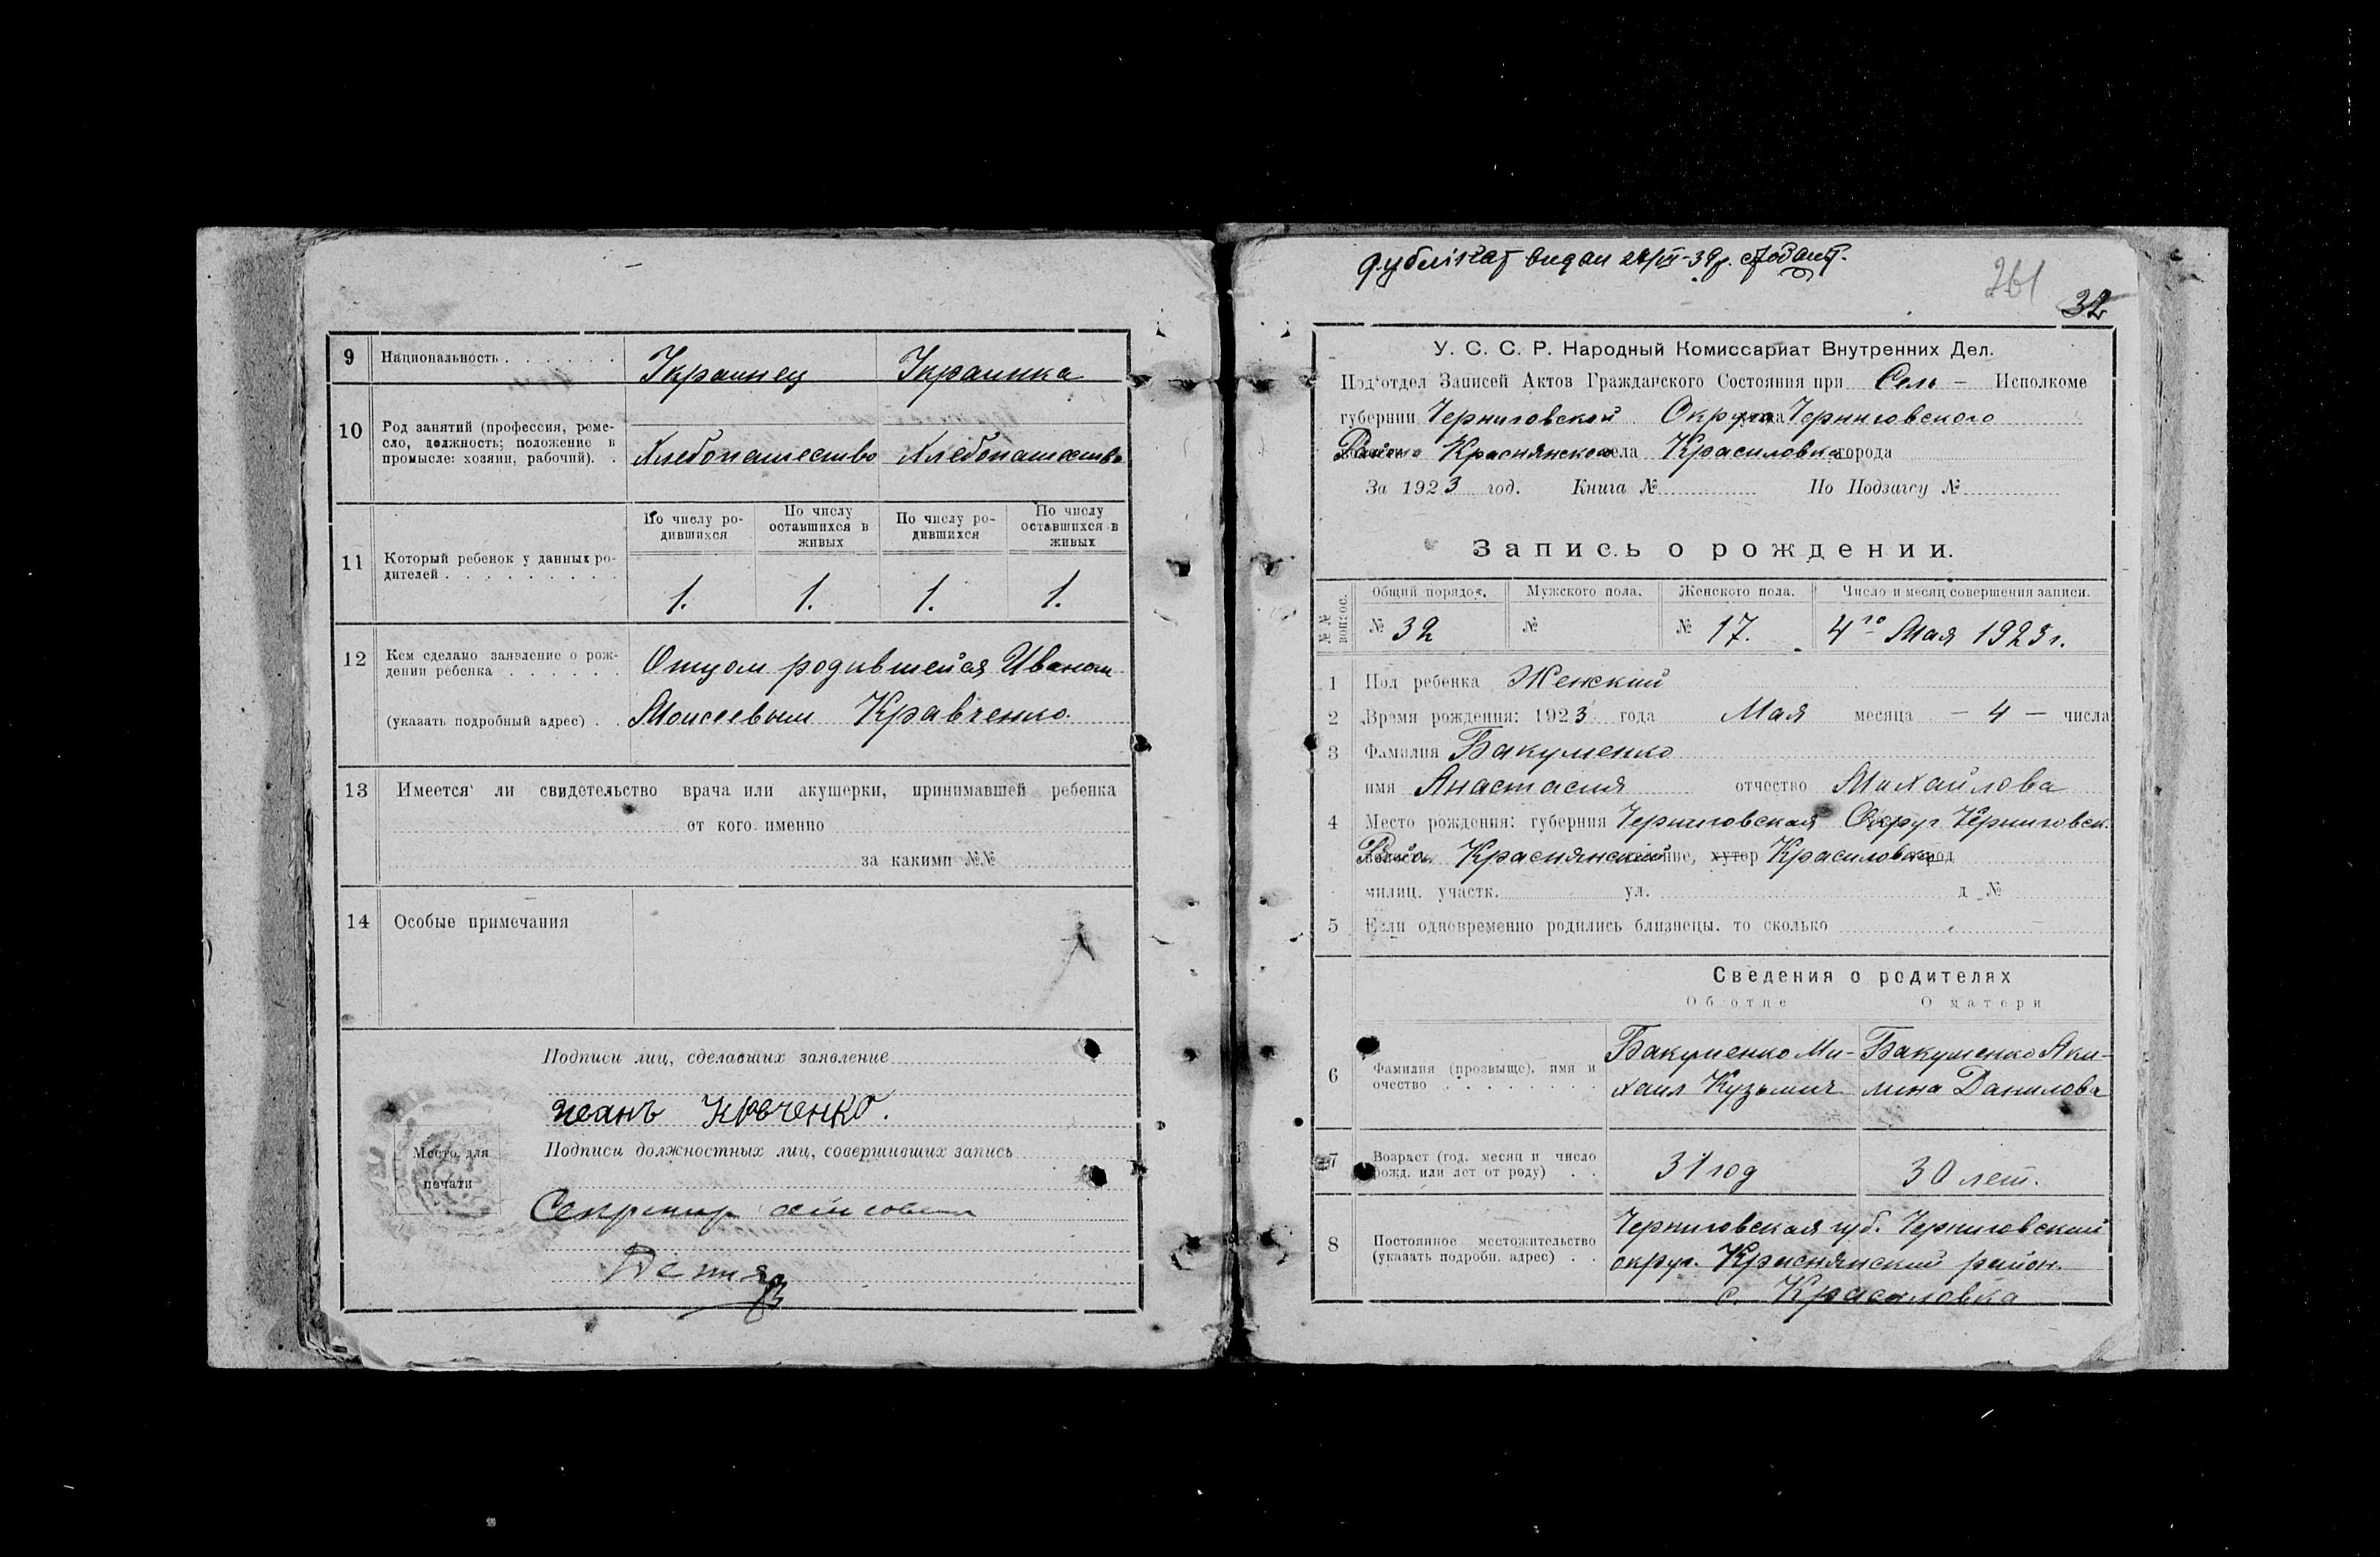 9 Национальность Украинец Украинка
10 Род занятий (профессия, реме-
сло, должность; положение в
промысле: хозяин, рабочий). Хлебопашество Хлебопашество
По числу ро-
дившихся
По числу
оставшихся в
живых
По числу ро-
дившихся
По числу
оставшихся в
живых
11 Который ребенок у данных ро-
дителей 1. 1. 1. 1.
12 Кем сделано заявление о рож-
дении ребенка Отцом родившейся Иваном
(указать подробный адрес) Моисеевым Кравченко.
13 Имеется ли свидетельство врача или акушерки, принимавшей ребенка
от кого именно
за какими №№
14 Особые примечания
Подписи лиц, сделавших заявление
Кравченко.
Подписи должностных лиц, совершивших запись
Место для
печати
Секретарь
дублікат видан
261
32
У. С. С. Р. Народный Комиссариат Внутренних Дел.
Под'отдел Записей Актов Гражданского Состояния при Сель - Исполкоме
губернии Черниговской Округа Черниговского
Района Краснянского села Красиловка города
За 1923 год. Книга № По Подзагсу №
Запись о рождении.
№№ вопрос.
Общий порядок. Мужского пола. Женского пола. Число и месяц совершения записи.
№ 32 № № 17. 4го Мая 1923 г.
1 Пол ребенка Женский
2 Время рождения: 1923 года Мая месяца - 4 - числа
3 Фамилия Бакуменко
имя Анастасия отчество Михайлова
4 Место рождения: губерния Черниговская Округ Черниговск.
Район Краснянский селение, хутор Красиловка город
милиц. участк. ул. д №
5 Если одновременно родились близнецы, то сколько
Сведения о родителях
Об отце О матери
6 Фамилия (прозвище), имя и
очество
Бакуменко Ми-
хаил Кузьмич
Бакуменко Аки-
лина Данилова
7 Возраст (год, месяц и число
рожд. или лет от роду) 31 год 30 лет.
8 Постоянное местожительство
(указать подробн. адрес)
Черниговская губ. Черниговский
округ. Краснянский район.
с. Красиловка